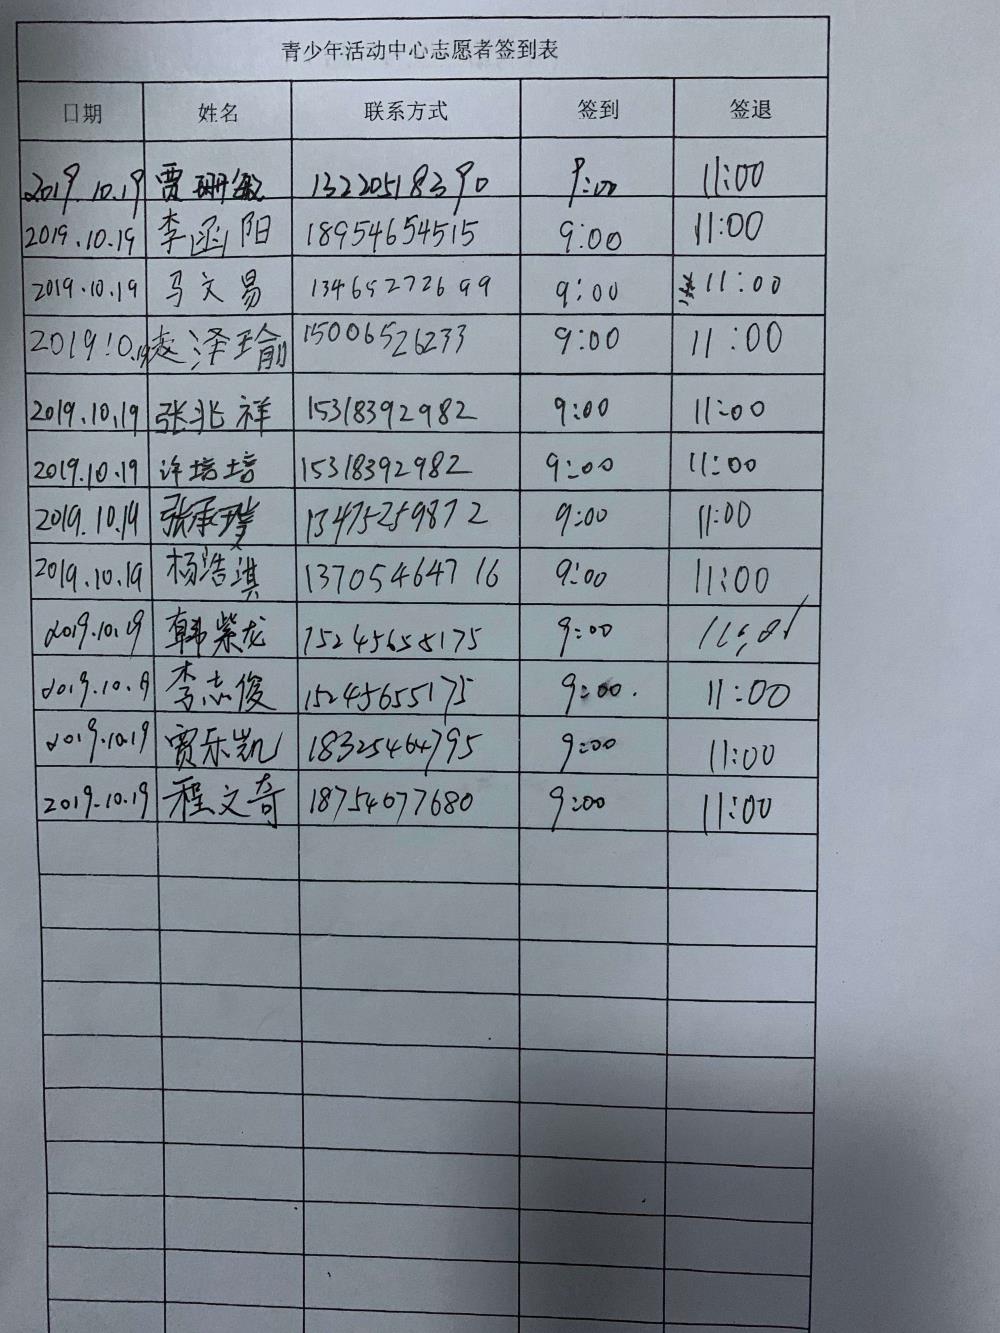 青少年活动中心志愿者签到表
日期 姓名 联系方式 签到 签退
2019.10.19 贾珊 13220518390 9:00 11:00
2019.10.19 李函阳 18954654515 9:00 11:00
2019.10.19 马文易 13465272699 9:00 11:00
2019.10.19 泽瑜 15006526233 9:00 11:00
2019.10.19 张兆祥 15318392982 9:00 11:00
2019.10.19 许培培 15318392982 9:00 11:00
2019.10.19 张承 13475259872 9:00 11:00
2019.10.19 杨浩淇 13705464716 9:00 11:00
2019.10.19 韩紫龙 15245655175 9:00
2019.10.19 李志俊 15245655175 9:00. 11:00
2019.10.19 贾乐凯 18325464795 9:00 11:00
2019.10.19 程文奇 18754677680 9:00 11:00